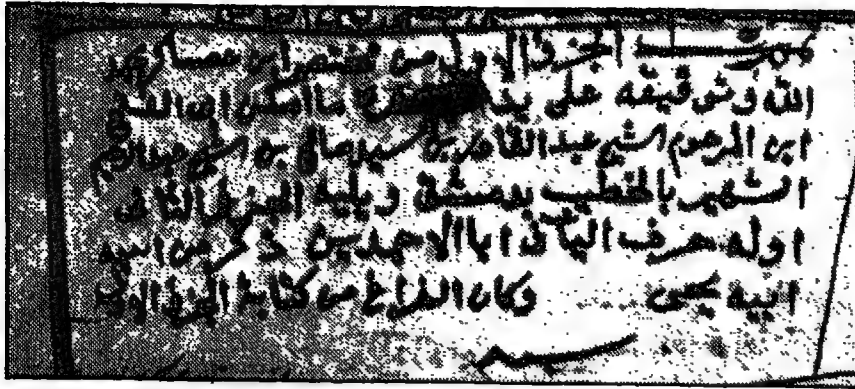 تمت الجزء الاول من مختصر ابن عساكر بحمد
الله وتوفيقه على يد
ابن المرحوم الشيخ عبد القادر بن السيد صالح بن الشيخ عبد الرحيم
الشهير بالخطيب بدمشق ويليه الجزء الثاني
اوله حرف الياء اباء الاحمدين ذكر من اسم
ابيه يحيى وكان الفراغ من كتابة الجزء الاول